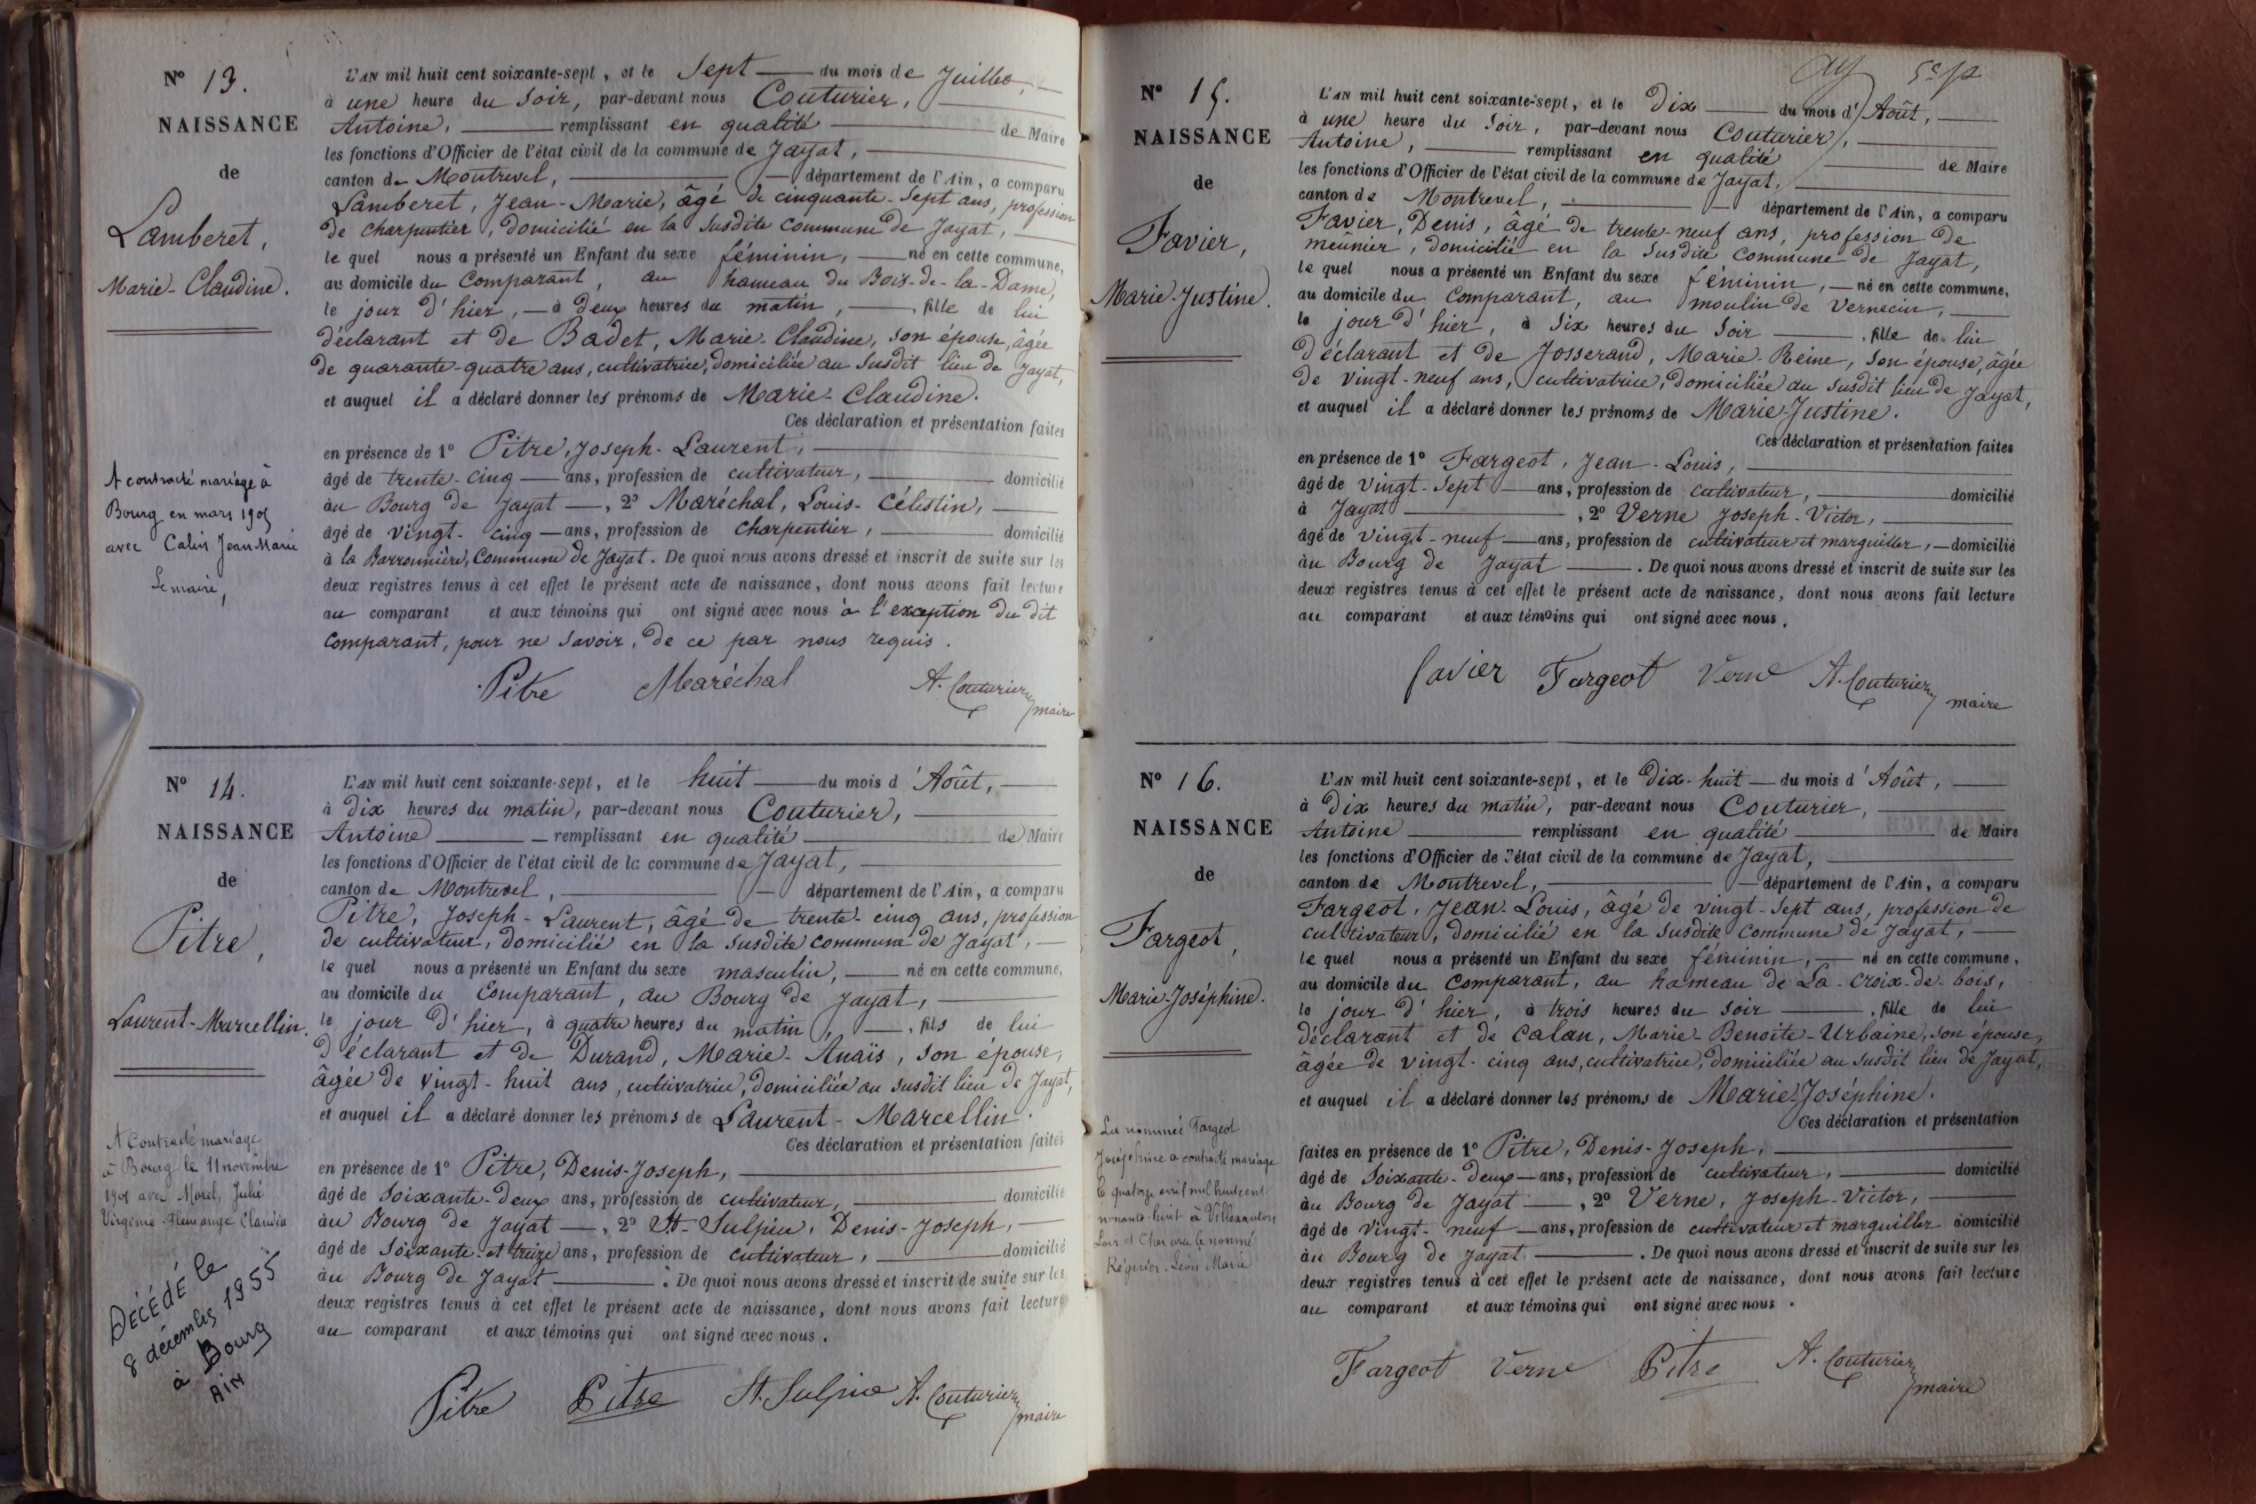 N° 13.
NAISSANCE
de
Lamberet,
Marie-Claudine.
A contracté mariage à
Bourg en mars 190
avec Calin Jean Marie
Le maire,
L'AN mil huit cent soixante-sept, et le Sept du mois de Juillet,
à une heure du Soir, par-devant nous Couturier,
Antoine, remplissant en qualité de Maire
les fonctions d'Officier de l'état civil de la commune de Jayat,
canton de Montrevel, département de l'Ain, a comparu
Lamberet, Jean-Marie, âgé de cinquante-Sept ans, profession
de charpentier, domicilié en la Susdite Commune de Jayat,
le quel nous a présenté un Enfant du sexe féminin, né en cette commune,
au domicile du Comparant, au hameau du Bois-de-la-Dame,
le jour d'hier, à deux heures du matin, fille de lui
déclarant et de Badet, Marie-Claudine, son épouse, âgée
de quarante-quatre ans, cultivatrice, domiciliée au Susdit lieu de Jayat,
et auquel il a déclaré donner les prénoms de Marie-Claudine.
Ces déclaration et présentation faites
en présence de 1° Pitre, Joseph-Laurent,
âgé de trente-cinq ans, profession de cultivateur, domicilié
au Bourg de Jayat, 2° Maréchal, Louis-Célestin,
âgé de vingt-cinq ans, profession de charpentier, domicilié
à la Barronnière, Commune de Jayat. De quoi nous avons dressé et inscrit de suite sur les
deux registres tenus à cet effet le présent acte de naissance, dont nous avons fait lecture
au comparant et aux témoins qui ont signé avec nous à l'exception du dit
comparant, pour ne savoir, de ce par nous requis.
Pitre Maréchal A. Couturier
maire
N° 14.
NAISSANCE
de
Pitre,
Laurent-Marcellin.
A Contracté mariage
à Bourg le 11 novembre
190 avec Morel, Julie
Virgénie Claudia
DÉCÉDÉ le
8 décembre 1955
à Bourg
AIN
L'AN mil huit cent soixante-sept, et le huit du mois d'Août,
à dix heures du matin, par-devant nous Couturier,
Antoine remplissant en qualité de Maire
les fonctions d'Officier de l'état civil de la commune de Jayat,
canton de Montrevel, département de l'Ain, a comparu
Pitre, Joseph-Laurent, âgé de trente-cinq ans, profession
de cultivateur, domicilié en la susdite commune de Jayat,
le quel nous a présenté un Enfant du sexe masculin, né en cette commune,
au domicile du Comparant, au Bourg de Jayat,
le jour d'hier, à quatre heures du matin, fils de lui
déclarant et de Durand, Marie-Anaïs, son épouse,
âgée de vingt-huit ans, cultivatrice, domiciliée au susdit lieu de Jayat,
et auquel il a déclaré donner les prénoms de Laurent-Marcellin.
Ces déclaration et présentation faites
en présence de 1° Pitre, Denis-Joseph,
âgé de Soixante-deux ans, profession de cultivateur, domicilié
au Bourg de Jayat, 2° St-Sulpice, Denis-Joseph,
âgé de Soixante-et treize ans, profession de cultivateur, domicilié
au Bourg de Jayat. De quoi nous avons dressé et inscrit de suite sur les
deux registres tenus à cet effet le présent acte de naissance, dont nous avons fait lecture
au comparant et aux témoins qui ont signé avec nous.
Pitre Pitre St. Sulpice A. Couturier
maire
N° 15.
NAISSANCE
de
Favier,
Marie-Justine.
L'AN mil huit cent soixante-sept, et le Dix du mois d'Août,
à une heure du Soir, par-devant nous Couturier,
Antoine, remplissant en qualité de Maire
les fonctions d'Officier de l'état civil de la commune de Jayat,
canton de Montrevel, département de l'Ain, a comparu
Favier, Denis, âgé de trente-neuf ans, profession de
meunier, domicilié en la Susdite Commune de Jayat,
le quel nous a présenté un Enfant du sexe féminin, né en cette commune,
au domicile du Comparant, au moulin de Vernecin,
le jour d'hier, à Six heures du Soir, fille de lui
déclarant et de Josserand, Marie-Reine, son épouse, âgée
de vingt-neuf ans, cultivatrice, domiciliée au susdit lieu de Jayat,
et auquel il a déclaré donner les prénoms de Marie-Justine.
Ces déclaration et présentation faites
en présence de 1° Fargeot, Jean-Louis,
âgé de vingt-Sept ans, profession de cultivateur, domicilié
à Jayat, 2° Verne Joseph-Victor,
âgé de vingt-neuf ans, profession de cultivateur et marguiller, domicilié
au Bourg de Jayat. De quoi nous avons dressé et inscrit de suite sur les
deux registres tenus à cet effet le présent acte de naissance, dont nous avons fait lecture
au comparant et aux témoins qui ont signé avec nous.
favier Fargeot Verne A. Couturier
maire
N° 16.
NAISSANCE
de
Fargeot,
Marie-Joséphine.
La nommée Fargeot
Joséphine a contracté mariage
le quatorze avril mil huit cent
nonante huit à
Loir et Cher avec le nommé
Régnier-Léon-Marie
L'AN mil huit cent soixante-sept, et le Dix-huit du mois d'Août,
à dix heures du matin, par-devant nous Couturier,
Antoine remplissant en qualité de Maire
les fonctions d'Officier de l'état civil de la commune de Jayat,
canton de Montrevel, département de l'Ain, a comparu
Fargeot, Jean-Louis, âgé de vingt-Sept ans, profession de
cultivateur, domicilié en la susdite Commune de Jayat,
le quel nous a présenté un Enfant du sexe féminin, né en cette commune,
au domicile du Comparant, au hameau de La-Croix-de-bois,
le jour d'hier, à trois heures du Soir, fille de lui
déclarant et de Calan, Marie-Benoîte-Urbaine, son épouse,
âgée de vingt-cinq ans, cultivatrice, domiciliée au susdit lieu de Jayat,
et auquel il a déclaré donner les prénoms de Marie-Joséphine.
Ces déclaration et présentation
faites en présence de 1° Pitre, Denis-Joseph,
âgé de Soixante-deux ans, profession de cultivateur, domicilié
au Bourg de Jayat, 2° Verne, Joseph-Victor,
âgé de vingt-neuf ans, profession de cultivateur et marguiller domicilié
au Bourg de Jayat. De quoi nous avons dressé et inscrit de suite sur les
deux registres tenus à cet effet le présent acte de naissance, dont nous avons fait lecture
au comparant et aux témoins qui ont signé avec nous.
Fargeot Verne Pitre A. Couturier
maire